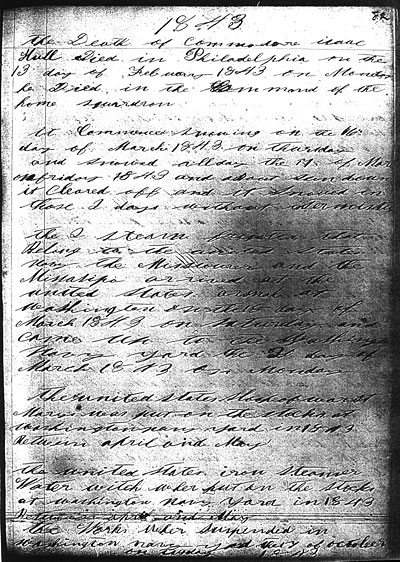 82
1843
the Death of Commodore isaac
Hull Died in Philadelphia on the
13 day of February 1843 on Monday
he Died in the Command of the
home squadron
it Commenced snowing on the 16
day of March 1843 on thursday
and snowed all day the 17 of Mar
on friday 1843 and
it Cleared off and it snowed in
those 2 days without
the 2 steam
Belong to the United States
the Missouri and the
Missisipi arrived at the
united States arsenal at
Washington on the day of
March 1843 on Saturday and
Came up to the Washing
Navy yard the 2 day of
March 1843 on Monday
the united States Sloop of war St
Marys was put on the stocks at
Washington navy yard in 1843
Between april and May
the united States iron Steamer
Water witch wher put on the Stocks
at Washington Navy Yard in 1843
Between april and May
the Works wher Suspended in
Washington navy yard the October
on tuesday 1843